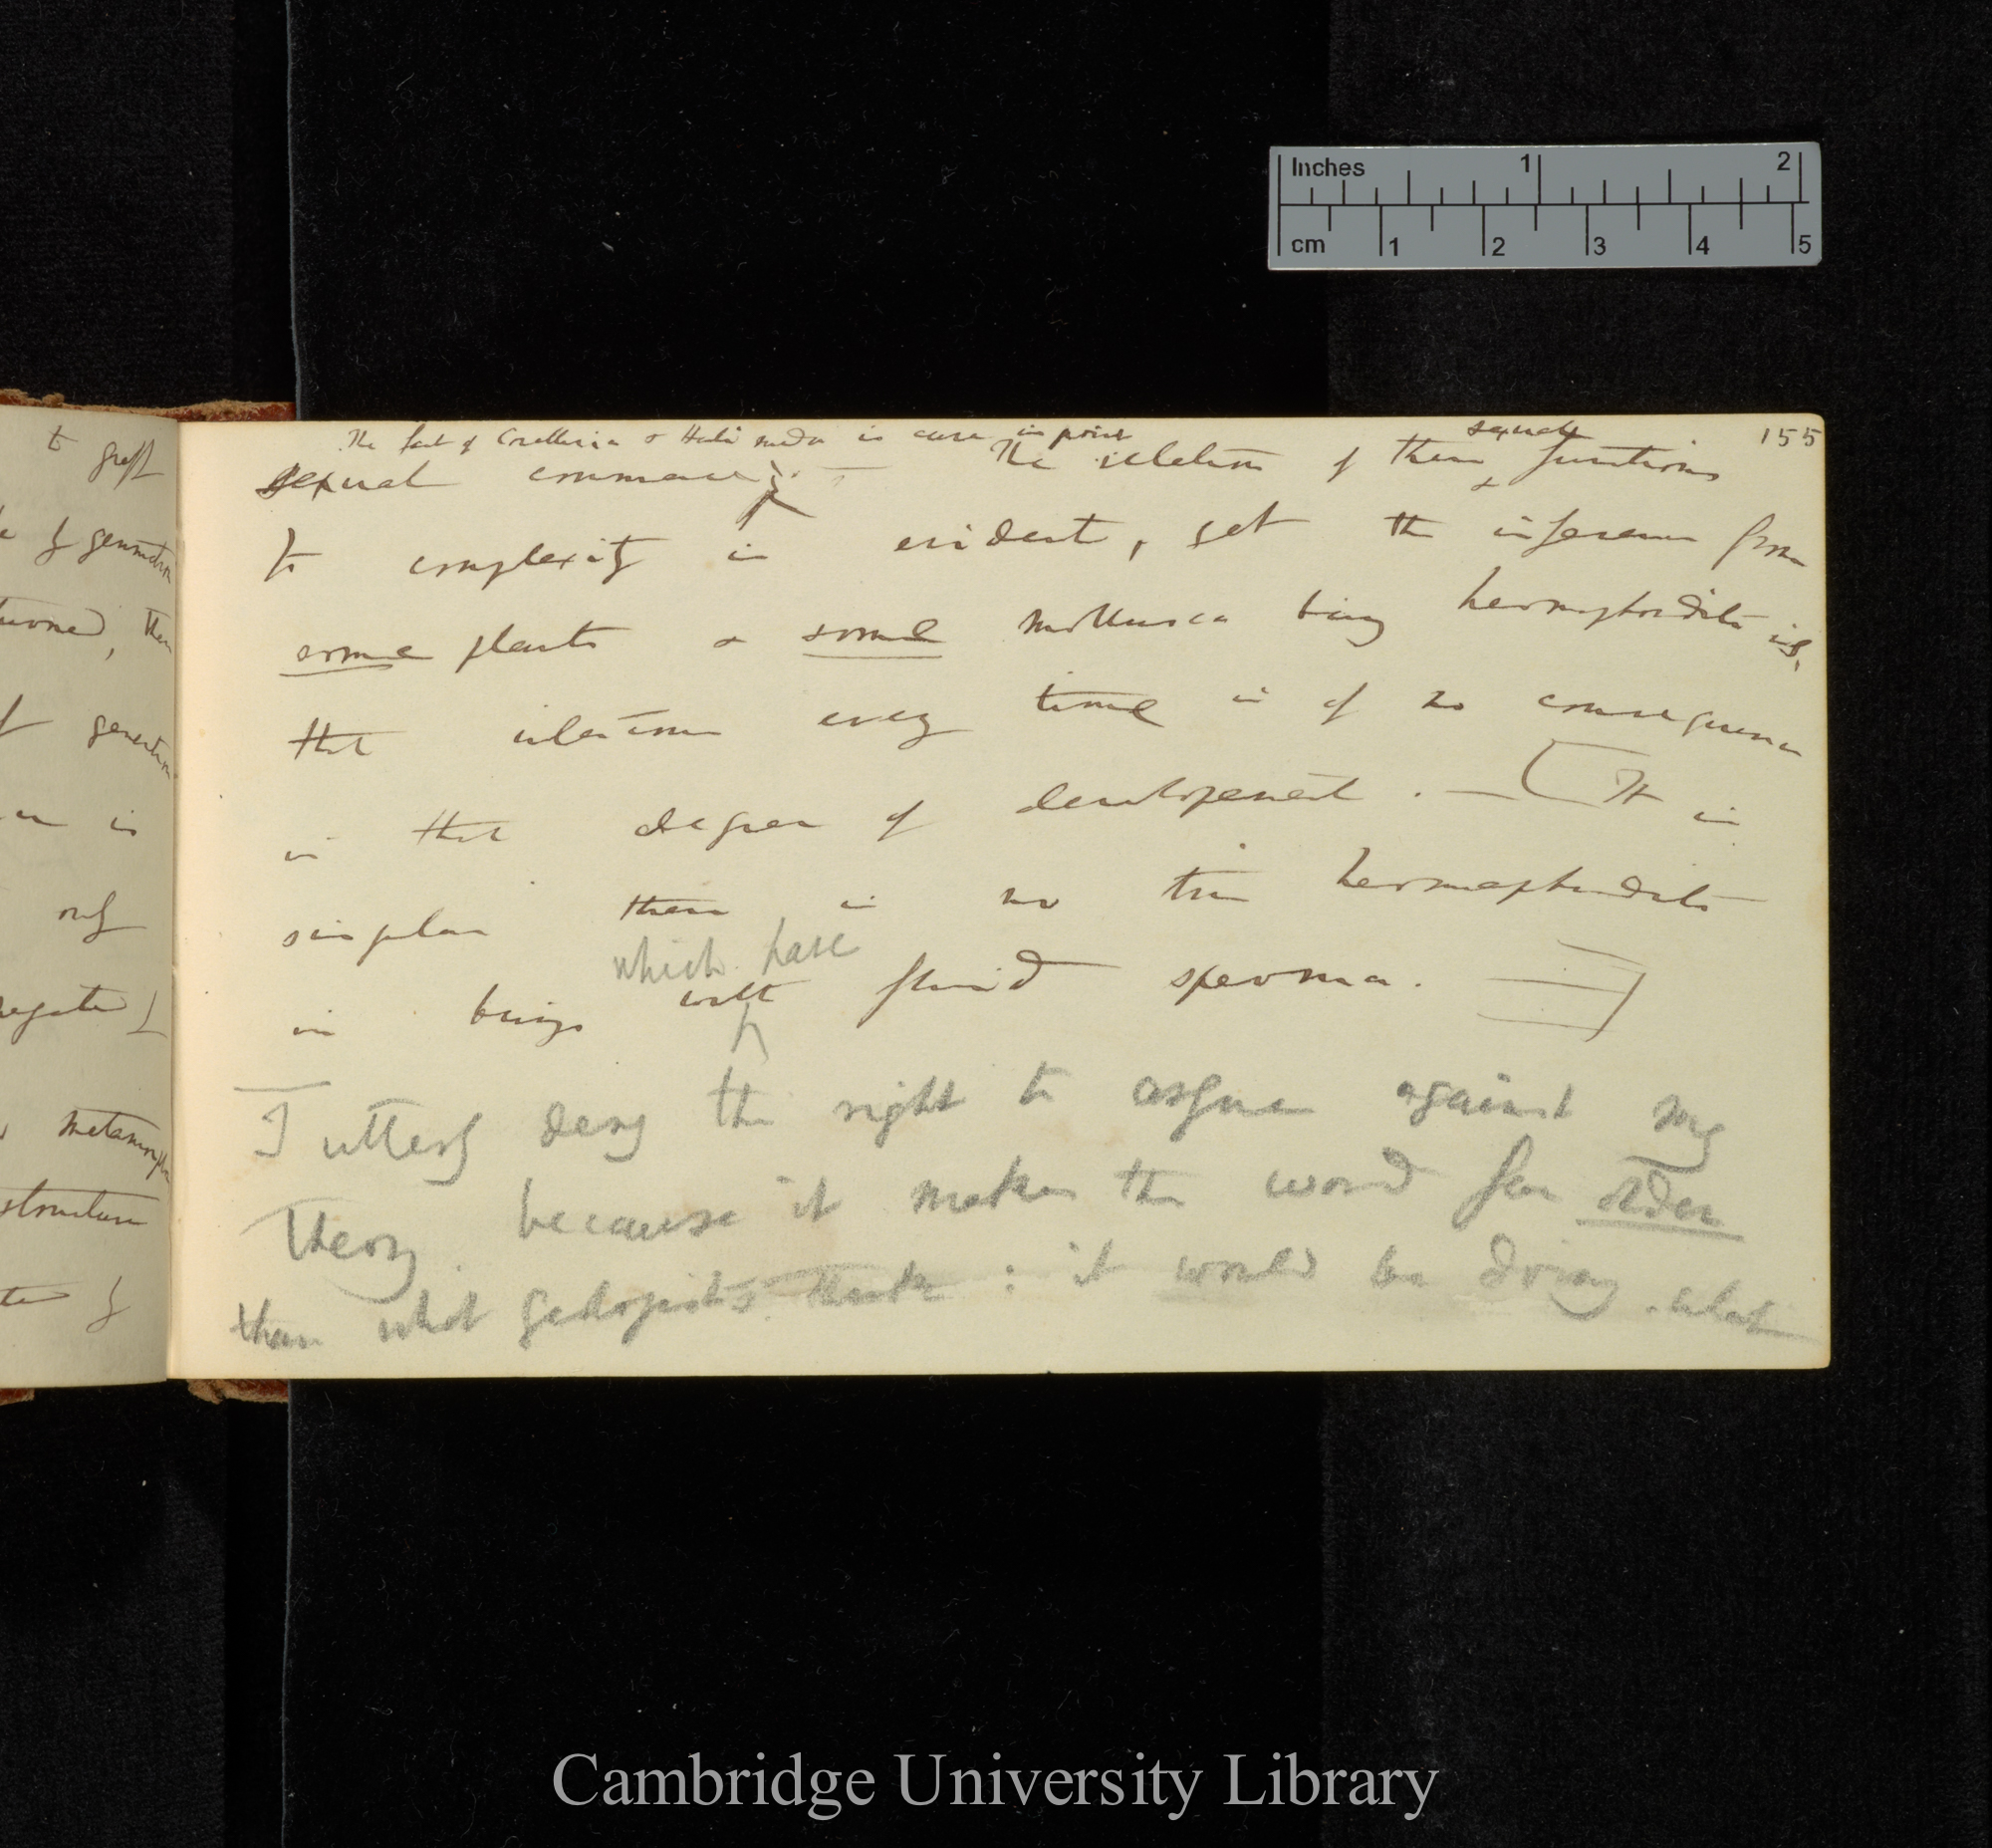 Inches 1 2
cm 1 2 3 4 5
to graft
of generation
then
generation
is
only
metamorpho
structure
of
155
The fact of Corallina & Halimeda is case in point
sexual
sexual commerce. — The relation of these functions
to complexity is evident, yet the inference from
some plants & some mollusca being hermaphrodite is,
that intercourse every time is of no consequence
in that degree of development. — [It is
singular there is no true hermaphrodite
which have
in beings with fluid sperma. ]
I utterly deny the right to argue against my
theory because it makes the world far older
than what geologists think: it would be doing what
Cambridge University Library